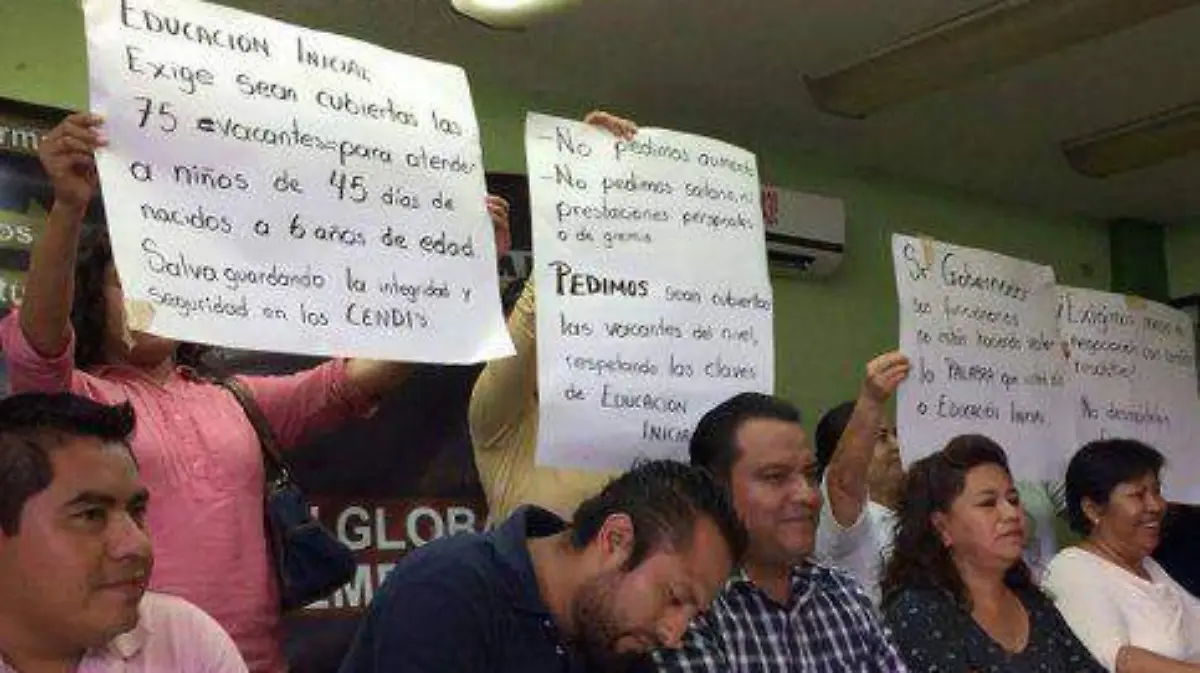 EDUCACIÓN INICIAL
Exige sean cubiertas las
75 =vacantes=para atender
a niños de 45 días de
nacidos a 6 años de edad.
Salvaguardando la integridad y
seguridad en los CENDIS
-No pedimos aumento
-No pedimos salario, ni
prestaciones personales
o de gremio
PEDIMOS sean cubiertas
las vacantes del nivel,
respetando las claves
de EDUCACIÓN
INICIAL
Sr Gobernador
sus funcionarios
no están haciendo valer
la PALABRA que
a EDUCACIÓN INICIAL
¡Exigimos
negociación con
No
LGLOB
EM
os